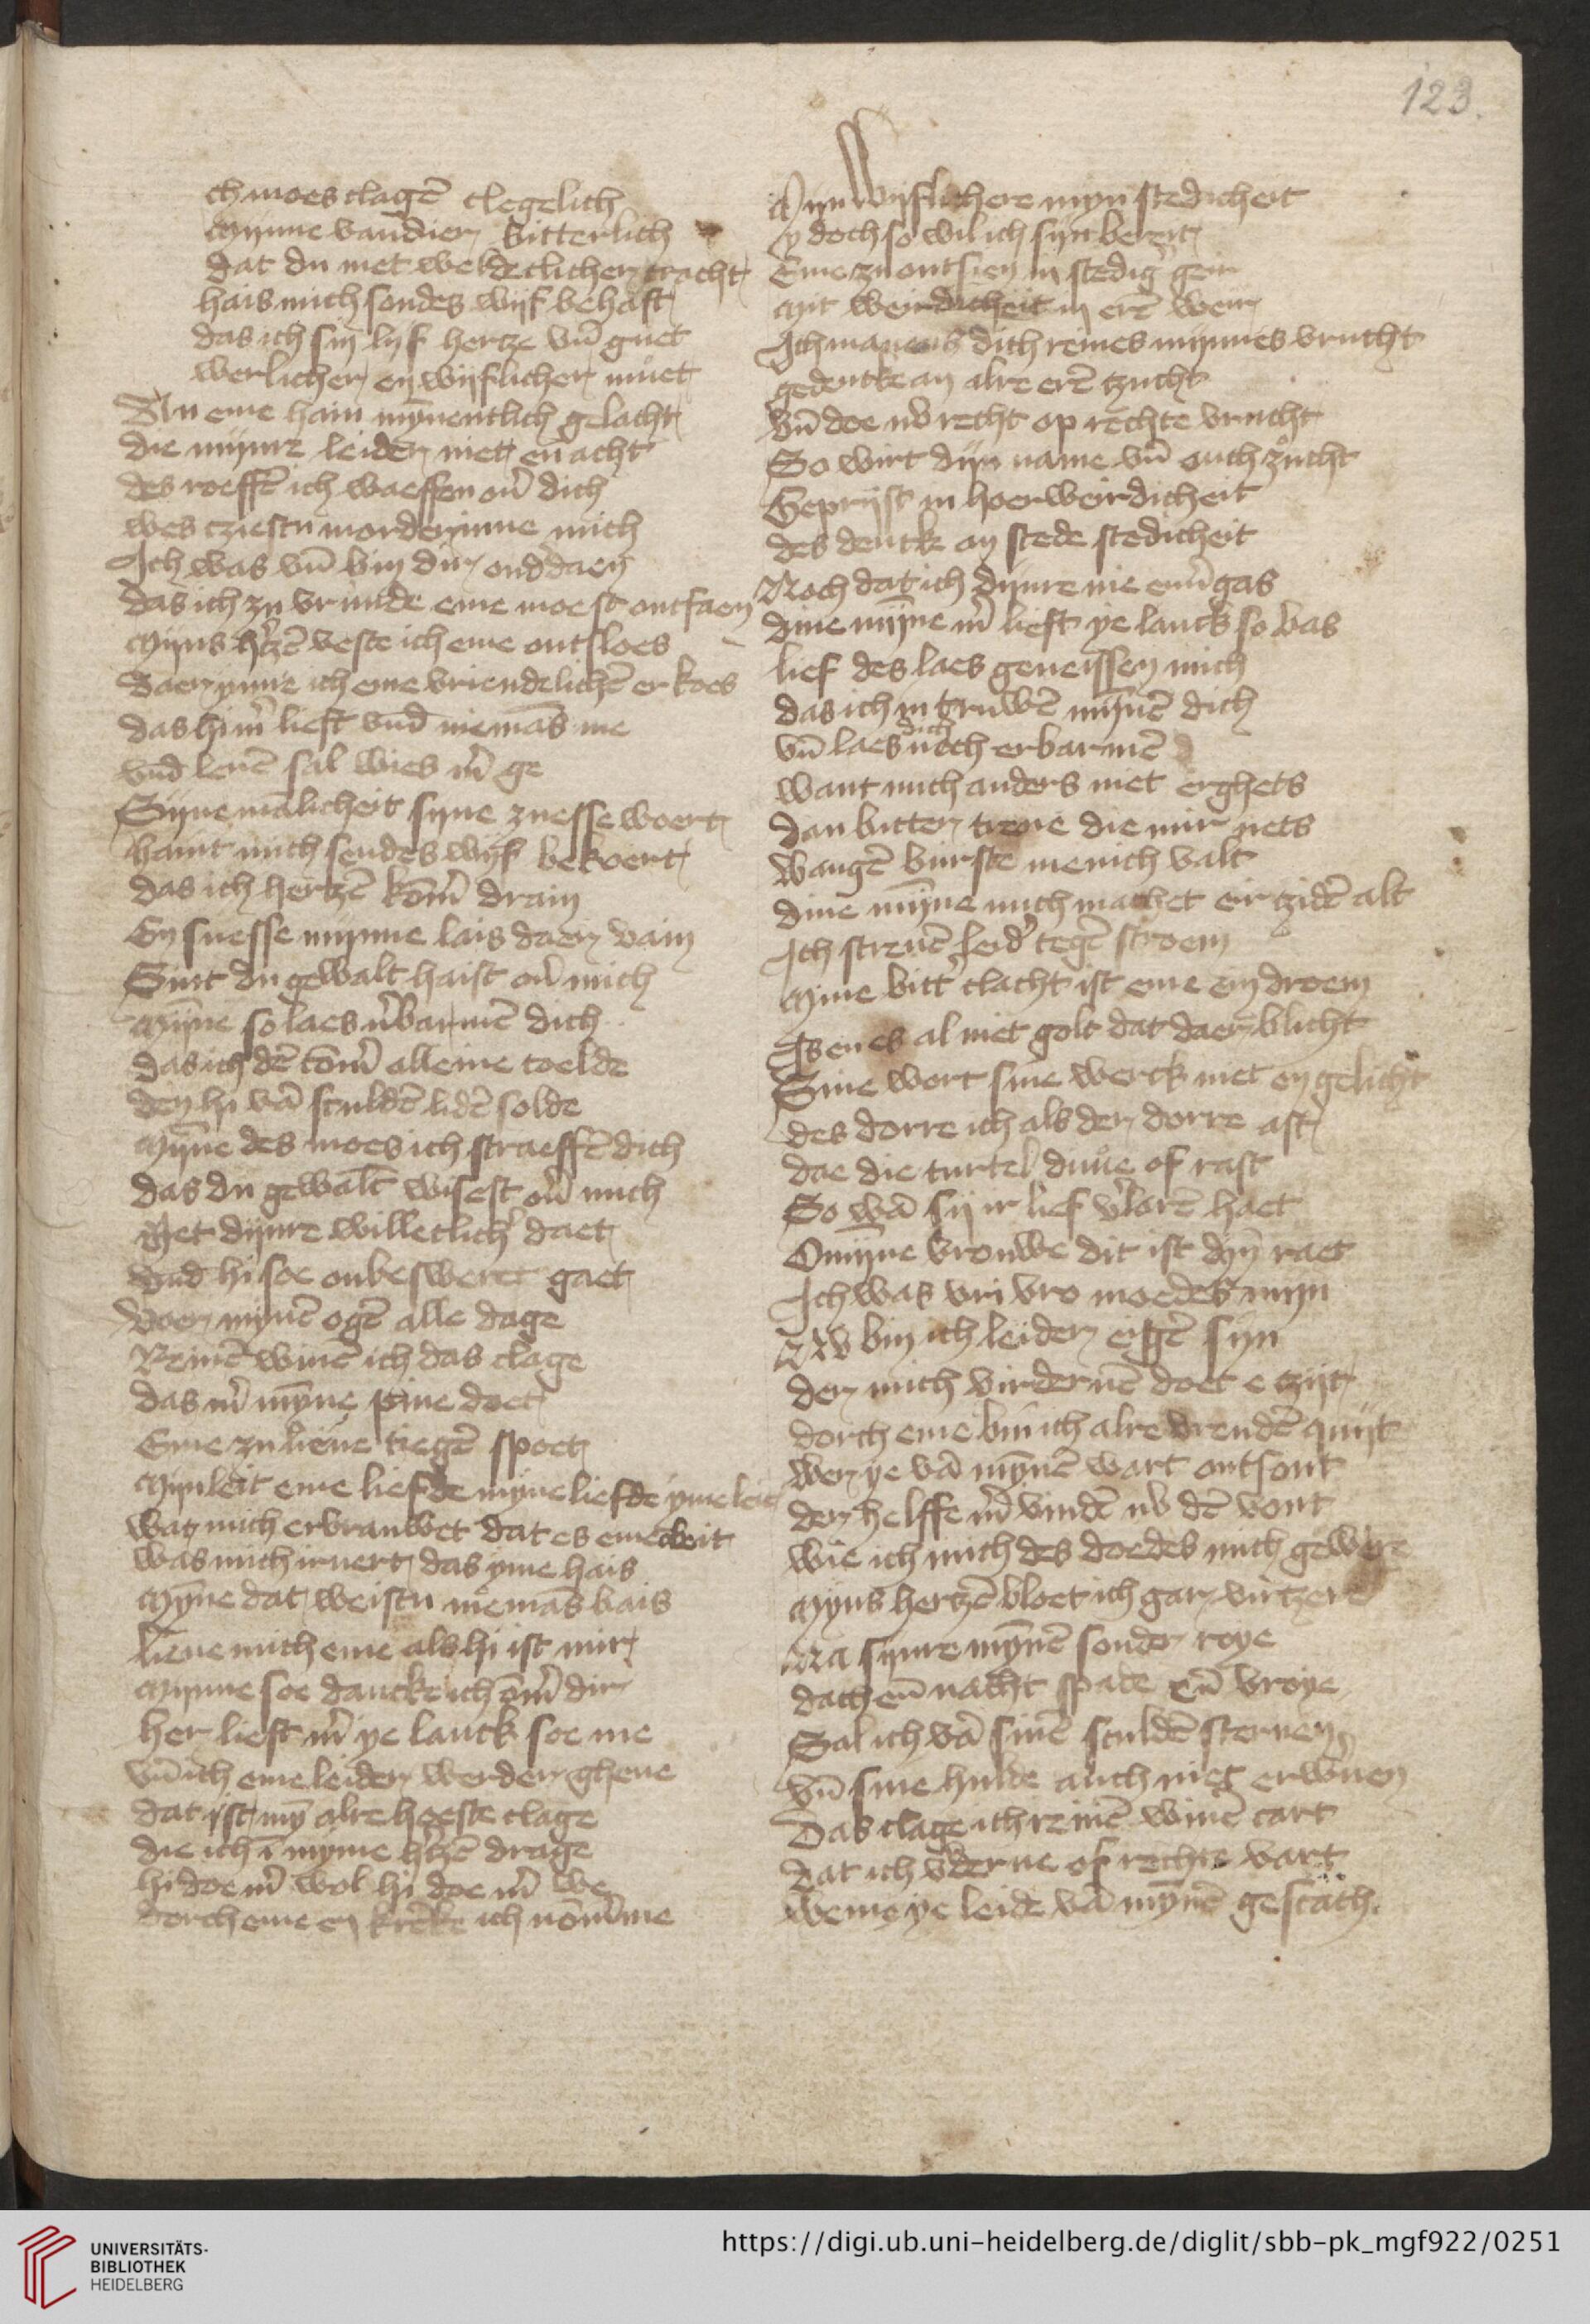 123
ch moes clagē clegelich
Mynne van dier bitterlich
dat du met werdeclicher cracht
hais mich sendes wijf behaft
das ich sin lyf hertze vn̄ guet
werlicher en wyflicher muet
An eme hain mynnentlich gelacht
die mynre leider niet en acht
des roeffē ich waeffen ou' dich
wes cziestu mordeninne mich
Ich was vn̄ bin dir ond'daen
das ich zu vrunde eme moest ontfaen
Myns h'tzē veste ich eme ontsloes
Daer ynne ich eme vriendelichē erkoes
das hi m' lieft vnd niemās me
vnd leuē sal wies m' ge
Syne mālicheit syne zuesse woert
haint mich sendes wyf bekoert
das ich hertzē kōm' drain
En suesse mynne lais daer vain
Sint du gewalt haist ou' mich
Mȳne so laes u'barmē dich
das ich dē cōm' alleine toelde
den hi vā sculdē lidē solde
Mȳne des moes ich straeffē dich
das du gewalt wisest ou' mich
Met dynre willeclich' daet
vnd hi soe onbesweret gaet
Voer mynē ogē alle dage
Reinē winē ich das clage
das m' mȳne pine doet
Eme zu lieue tiegē spoet
Myn leit eme liefde myne liefde yme leit
wat mich erbrauwet dat es eme breit
was mich iruert das yme hais
Mȳne dat weistu niemās bais
lieue mich eme als hi ist mir
Mynne soe dancke ich ōm' dir
her lieft m' ye lanck soe me
vn̄ ich eme leider werder ghene
dat ist mȳ alre hoeste clage
die ich ī myme h'tzē drage
hi doe m' wol hi doe m' we
dorch eme en krēke ich nōm'me
Myn wyfliche ere myn stedicheit
y doch so wil ich syn bereit
Eme zu ontsien in stedig' ger
Mit weirdicheit in erē wer
Ich manens dich reines mynnes vrucht
gedencke an alre erē tzucht
vn̄ doe nv recht op rechte vrucht
So wirt dyn name vn̄ ouch zucht
Geprijst in hoer weirdicheit
des denck an stede stedicheit
Noch dat ich dynre nie em'gas
dine mȳne m' lieft ye lanck so bas
lief des laes geneissen mich
das ich in truwē mȳnē dich
vn̄ laes dich noch erbarmē
want mich anders niet erghets
dan bitter trene die mir nets
wangē burste menich valt
dine mȳne mich machet eir tzidē alt
Ich streuē leid' tegē stroem
Mine bitt' clacht ist eme en droem
Isen es al niet golt dat daer blicht
Sine wort sine werck niet en gelicht
des dorre ich als der dorre ast
dae die turtel duue of rast
So wā sy ir lief v'lorē haet
O mȳne vrouwe dit ist dȳ raet
Ich was vri vro moedes myn
Nv bin ich leider eigē syn
der mich virdernē doet e tzijt
dorch eme bin ich alre vreudē quijt
wer ye vā mȳnē wart ontsont
der helffe m' vindē nv dē vont
wie ich mich des doedes mich gewere
Myns hertzē bloet ich gar virtzere
Na synre mȳnē sonder roye
dach en̄ nacht spade en̄ vroye
Sal ich vā sinē sculdē steruen
vn̄ sine hulde auch niet erw'uen
Das clage ich reinē winē cart
dat ich v'derue of rechte vart
weme ye leide vā mȳnē gescach.
UNIVERSITÄTS-
BIBLIOTHEK
HEIDELBERG
https://digi.ub.uni-heidelberg.de/diglit/sbb-pk_mgf922/0251